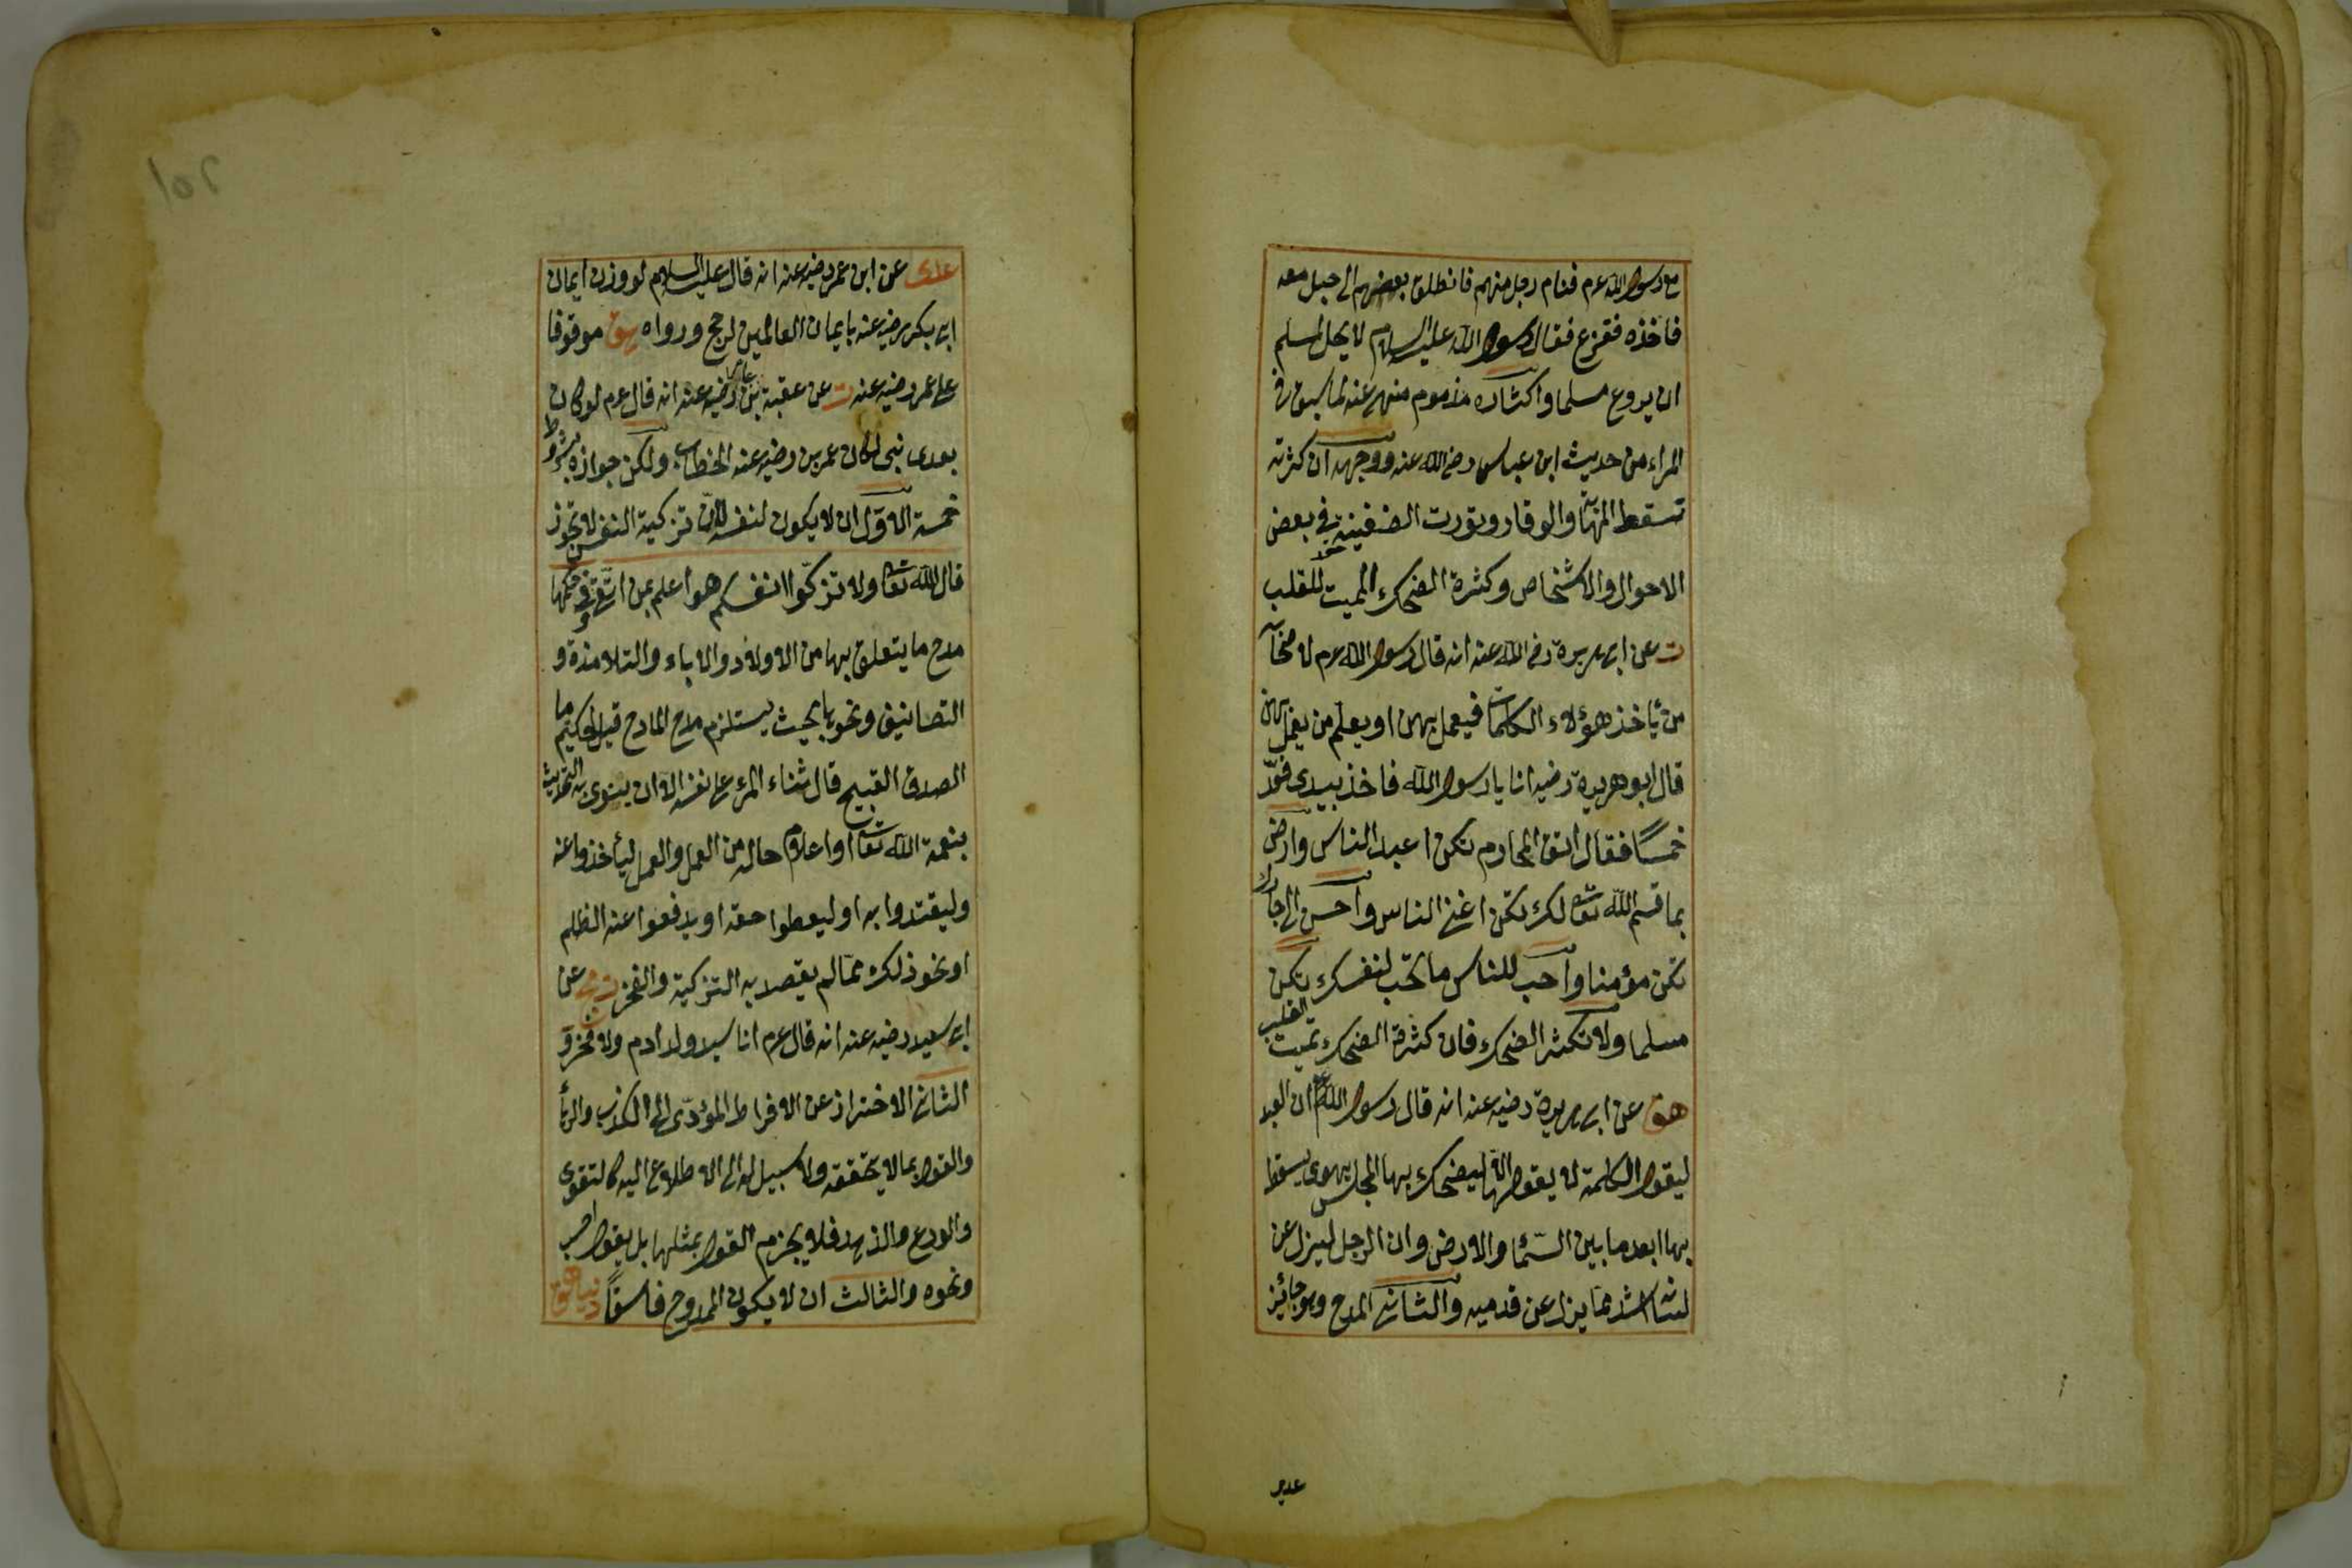 مع رسول الله عم فنام رجل منهم فانطلق بعضهم الى حبل معه
فاخذه ففزع فقال رسول الله عليه السلام لا يحل لمسلم
ان يروع مسلما واكثاره مذموم منهى عنه لما سبق فى
المراء من حديث ابن عباس رضى الله عنه ووجهه ان كثرته
تسقط المهابة والوقار وتورث الضغينة فى بعض
الاحوال والاشخاص وكثرة الضحك المميت للقلب
ت عن ابى هريرة رضى الله عنه انه قال رسول الله عم
من يأخذ هؤلاء الكلمات فيعمل بهن او يعلم من يعمل بهن
قال ابو هريرة رضيه انا يا رسول الله فاخذ بيدى فعدّ
خمسا فقال اتق المحارم تكن اعبد الناس وارض
بما قسم الله تعالى لك تكن اغنى الناس واحسن الى جارك
تكن مؤمنا واحب للناس ما تحب لنفسك تكن
مسلما ولا تكثر الضحك فان كثرة الضحك تميت القلب
هق عن ابى هريرة رضيه عنه انه قال رسول الله عم ان العبد
ليقول الكلمة لا يقولها الا ليضحك بها المجلس يهوى
بها ابعد ما بين السماء والارض وان الرجل ليزل عن
لسانه اشد مما يزل عن قدميه والثانى المدح وهو جائز
عدى
عدى عن ابن عمر رضيه عنه انه قال عليه السلام لو وزن ايمان
ابى بكر رضيه عنه بايمان العالمين لرجح ورواه هق موقوفا
على عمر رضيه عنه ت عن عقبة بن عامر رضيه عنه انه قال عم لو كان
بعدى نبى لكان عمر بن رضيه عنه الخطاب ولكن جوازه بشروط
خمسة الاول ان لا يكون لنفسه لان تزكية النفس لا تجوز
قال الله تعالى ولا تزكوا انفسكم هو اعلم بمن اتقى وفى حكمها
مدح ما يتعلق بها من الاولاد والاباء والتلامذة و
التصانيف ونحوها بحيث يستلزم مدح المادح قيل لحكيم ما
الصدق القبيح قال ثناء المرء على نفسه الا ان ينوى به التحديث
بنعمة الله تعالى او اعلام حاله من العلم والعمل ليأخذوا عنه
وليقتدوا به او ليعطوا حقه او يدفعوا عنه الظلم
او نحو ذلك مما لم يقصد به التزكية والفخر ت عن
ابى سعيد رضيه عنه انه قال عم انا سيد ولد ادم ولا فخر و
الثانى الاحتراز عن الافراط المؤدى الى الكذب والرياء
والقول بما لا يتحققه ولا سبيل له الى الاطلاع اليه كالتقوى
والورع والزهد فلا يجزم القول بمثلها بل يقول احسب
ونحوه والثالث ان لا يكون الممدوح فاسقا دنيا هق